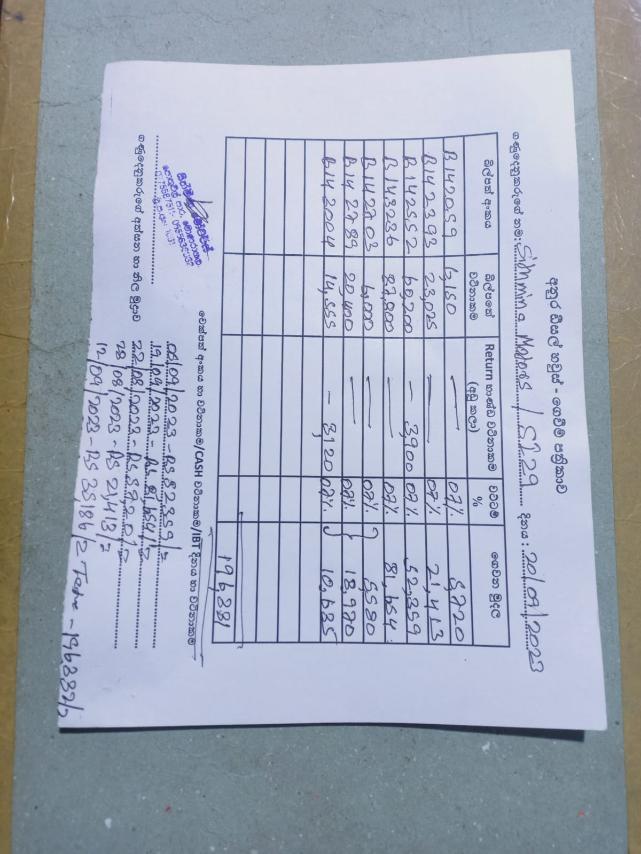 අනුර ඩීසල් හවුස් - ගෙවීම් පත්‍රිකාව
ගණුදෙනුකරුගේ නම: Simmina Motors / S129 දිනය : 20/09/2023
බිල්පත් අංකය බිල්පතේ වටිනාකම Return භාණ්ඩ වටිනාකම (අඩු කලා) වට්ටම් % ගෙවන මුදල
B142059 6,150 — 07% 5,720
B142393 23,025 — 07% 21,413
B142552 60,200 - 3,900 07% 52,359
B143236 87,800 — 07% 81,654
B142703 6,000 — 07% 5,580
B142789 20,400 — 07% 18,970
B142004 14,555 - 3,120 07% 10,635
196,331
චෙක්පත් අංකය හා වටිනාකම/CASH වටිනාකම/IBT දිනය හා වටිනාකම
06/09/2023 - RS 52359/=
19/09/2023 - RS 81,654/=
22/08/2023 - RS 5720/=
28/08/2023 - RS 21,413/=
12/09/2023 - RS 35,186/=
ගණුදෙනුකරුගේ අත්සන හා නිල මුද්‍රාව